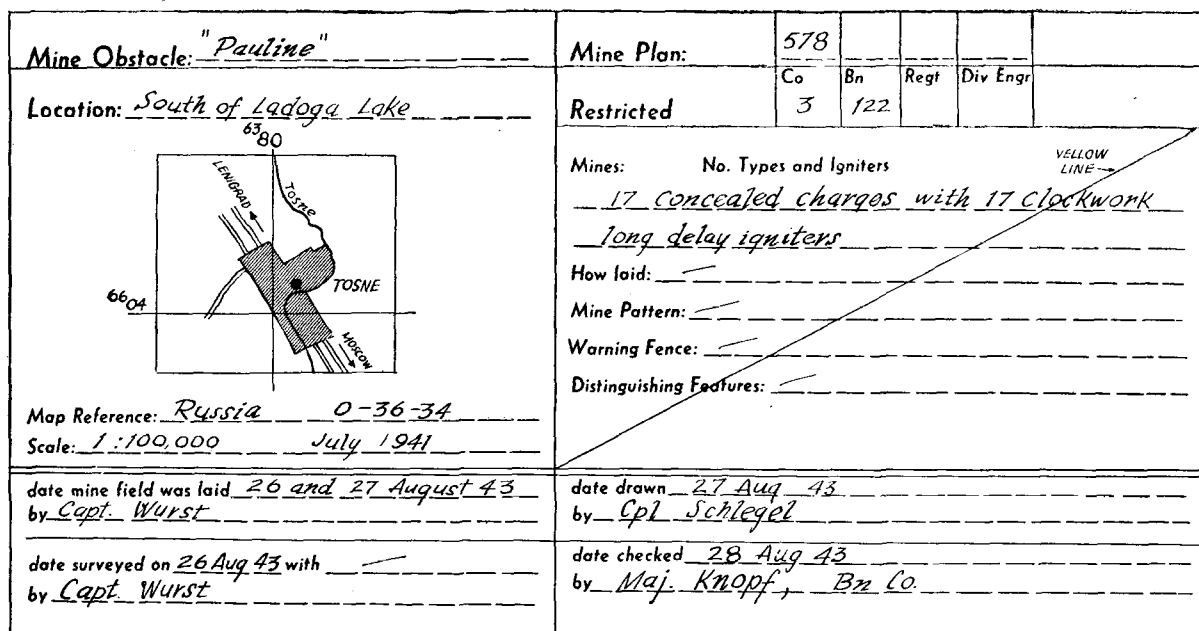 Mine Obstacle: "Pauline"
Location: South of Ladoga Lake
6380
LENIGRAD
Tosne
TOSNE
6604
MOSCOW
Map Reference: Russia 0-36-34
Scale: 1:100,000 July 1941
Mine Plan: 578
Co Bn Regt Div Engr
Restricted 3 122
Mines: No. Types and Igniters
YELLOW
LINE
17 concealed charges with 17 Clockwork
long delay igniters
How laid: —
Mine Pattern: —
Warning Fence: —
Distinguishing Features: —
date mine field was laid 26 and 27 August 43
by Capt. Wurst
date surveyed on 26 Aug 43 with —
by Capt. Wurst
date drawn 27 Aug 43
by Cpl Schlegel
date checked 28 Aug 43
by Maj. Knopf, Bn Co.